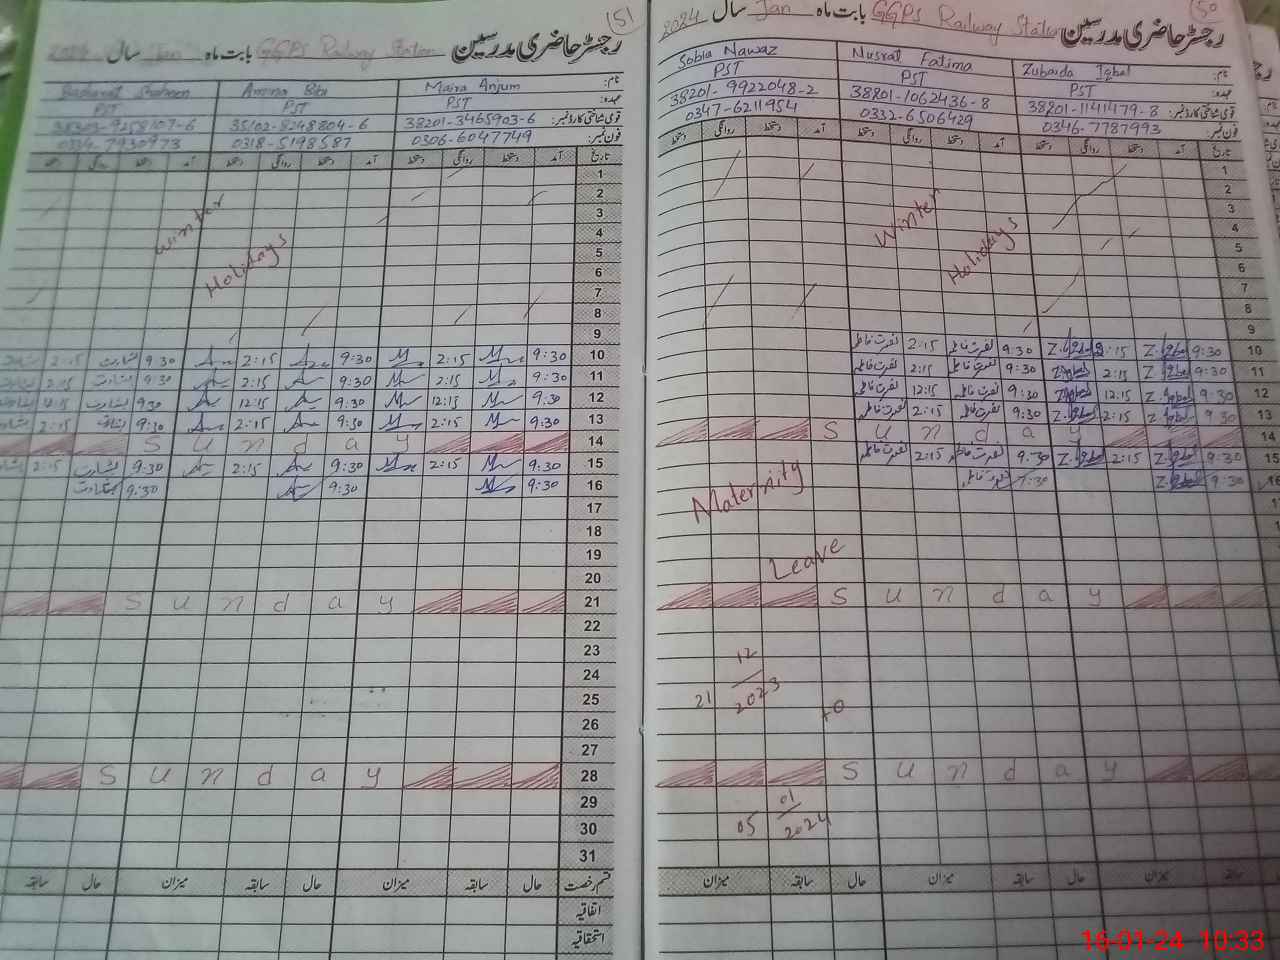 151
رجسٹر حاضری مدرسین GGPS Railway Station بابت ماہ Jan سال 2024
نام: Maira Anjum Amina Bibi Basharat Shaheen
عہدہ: PST PST PST
قومی شناختی کارڈ نمبر: 38201-3465903-6 35102-8248804-6 38303-9258107-6
فون نمبر: 0306-6047749 0318-5198587 0334-7930973
تاریخ آمد دستخط روانگی دستخط آمد دستخط روانگی دستخط
1
2
3
4
5
6
7
8
9
Winter
Holidays
10 9:30 2:15 9:30 2:15 9:30 بشارت 2:15
11 9:30 2:15 9:30 2:15 9:30 بشارت 2:15
12 9:30 12:15 9:30 12:15 9:30 بشارت 12:15
13 9:30 2:15 9:30 2:15 9:30 بشارت 2:15
14 Sunday
15 9:30 2:15 9:30 2:15 9:30 بشارت 2:15
16 9:30 9:30 9:30 بشارت
17
18
19
20
21 Sunday
22
23
24
25
26
27
28 Sunday
29
30
31
قسم رخصت حال سابقہ میزان حال سابقہ میزان حال سابقہ
اتفاقیہ
استحقاقیہ
150
رجسٹر حاضری مدرسین GGPS Railway Station بابت ماہ Jan سال 2024
نام: Zubaida Iqbal Nusrat Fatima Sobia Nawaz
عہدہ: PST PST PST
قومی شناختی کارڈ نمبر: 38201-1141479-8 38201-1062436-8 38201-9922048-2
فون نمبر: 0346-7787993 0332-6506429 0347-6211954
تاریخ آمد دستخط روانگی دستخط آمد دستخط روانگی دستخط آمد دستخط روانگی دستخط
1
2
3
4
5
6
7
8
9
Winter
Holidays
10 9:30 Z.Iqbal 2:15 Z.Iqbal 9:30 نصرت فاطمہ 2:15 نصرت فاطمہ
11 9:30 Z.Iqbal 2:15 Z.Iqbal 9:30 نصرت فاطمہ 2:15 نصرت فاطمہ
12 9:30 Z.Iqbal 12:15 Z.Iqbal 9:30 نصرت فاطمہ 12:15 نصرت فاطمہ
13 9:30 Z.Iqbal 2:15 Z.Iqbal 9:30 نصرت فاطمہ 2:15 نصرت فاطمہ
14 Sunday
15 9:30 Z.Iqbal 2:15 Z.Iqbal 9:30 نصرت فاطمہ 2:15 نصرت فاطمہ
16 9:30 Z.Iqbal 9:30 نصرت فاطمہ
Maternity
Leave
Sunday
21 12/2023
to
Sunday
05 01/2024
حال سابقہ میزان حال سابقہ میزان
16-01-24 10:33